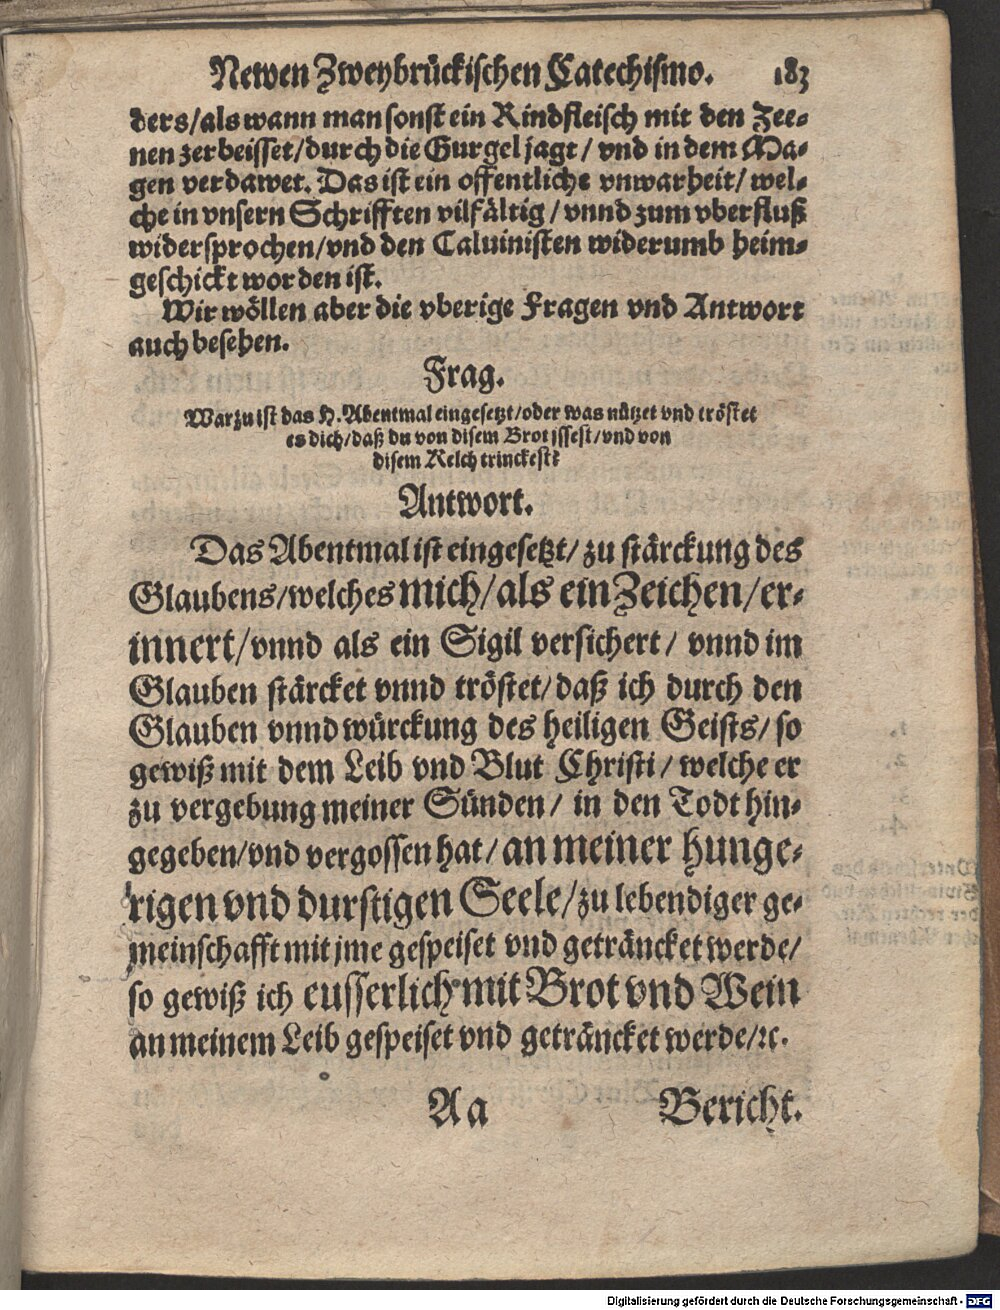 Newen Zweybrückischen Catechismo. 183
ders/als wann man sonst ein Rindfleisch mit den Zee-
nen zerbeisset/durch die Gurgel jagt/ vnd in dem Ma-
gen verdawet. Das ist ein offentliche vnwarheit/ wel-
che in vnsern Schrifften vilfältig/ vnnd zum vberfluß
widersprochen/vnd den Caluinisten widerumb heim-
geschickt worden ist.
Wir wöllen aber die vberige Fragen vnd Antwort
auch besehen.
Frag.
Warzu ist das H. Abentmal eingesetzt/oder was nützet vnd tröstet
es dich/daß du von disem Brot issest/vnd von
disem Kelch trinckest?
Antwort.
Das Abentmal ist eingesetzt/ zu stärckung des
Glaubens/welches mich/als ein Zeichen/er-
innert/vnnd als ein Sigil versichert/ vnnd im
Glauben stärcket vnnd tröstet/daß ich durch den
Glauben vnnd würckung des heiligen Geists/ so
gewiß mit dem Leib vnd Blut Christi/ welche er
zu vergebung meiner Sünden/ in den Todt hin-
gegeben/vnd vergossen hat/ an meiner hunge-
rigen vnd durstigen Seele/zu lebendiger ge-
meinschafft mit jme gespeiset vnd geträncket werde/
so gewiß ich eusserlich mit Brot vnd Wein
an meinem Leib gespeiset vnd geträncket werde/ꝛc.
Aa Bericht.
Digitalisierung gefördert durch die Deutsche Forschungsgemeinschaft - DFG